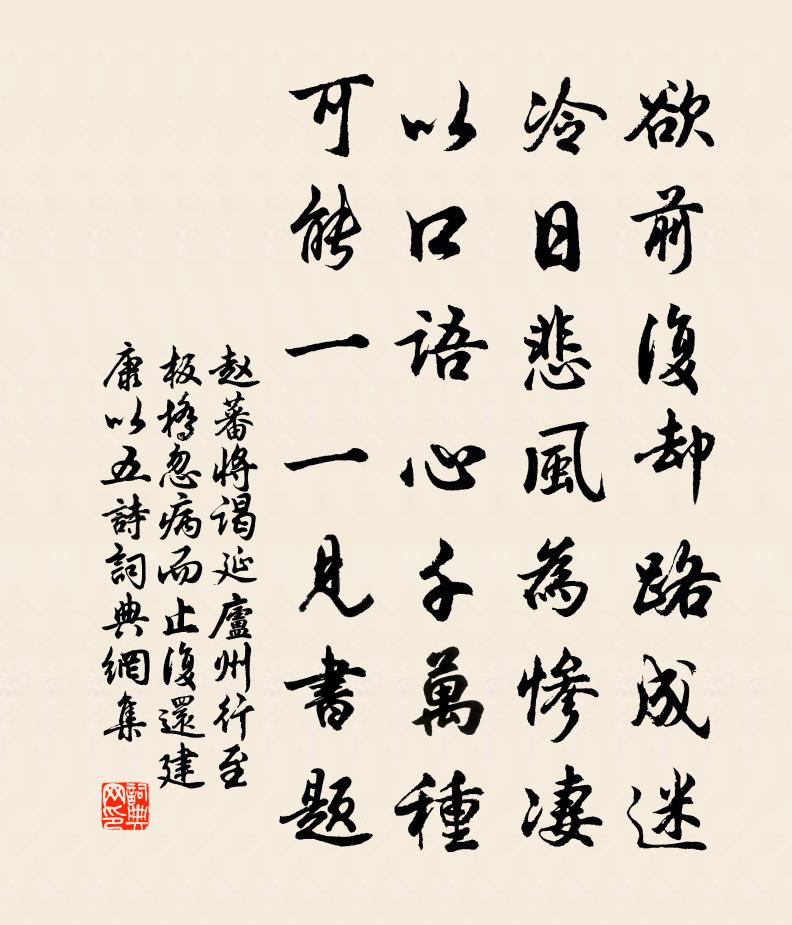 欲前復却路成迷
冷日悲風為慘凄
以口語心千萬種
可能一一見書題
赵蕃將谒延廬州行至
板橋忽病而止復還建
康以五詩詞典網集
詞典网印